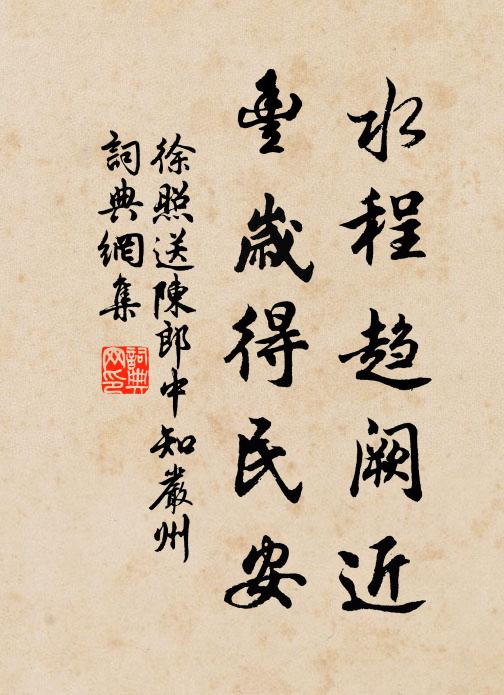 水程趋阙近
豊歲得民安
徐照送陳郎中知嚴州
詞典網集
詞典網印